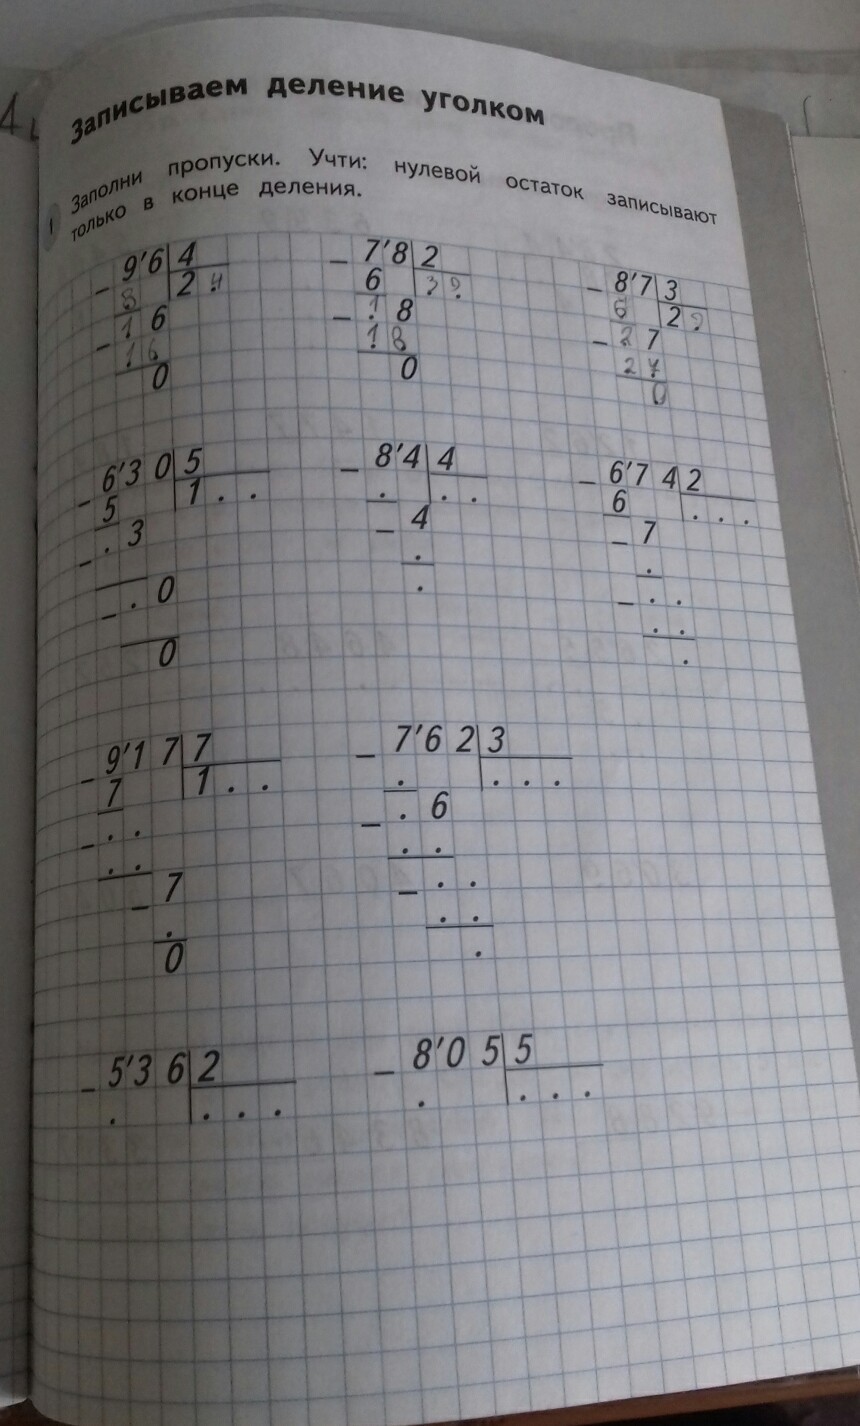 Записываем деление уголком
1 Заполни пропуски. Учти: нулевой остаток записывают
только в конце деления.
− 9'6 4 − 7'8 2 − 8'7 3
8 2 4 6 3 9 6 2 9
− 1 6 − 1 8 − 2 7
1 6 1 8 2 7
0 0 0
− 6'3 0 5 − 8'4 4 − 6'7 4 2
5 1 . . . . . 6 . . .
− . 3 − 4 − 7
. .
− . 0 . − . .
. .
0 .
− 9'1 7 7 − 7'6 2 3
7 1 . . . . . .
− . . − . 6
. . . .
− 7 − . .
. . .
0 .
− 5'3 6 2 − 8'0 5 5
. . . . . . . .